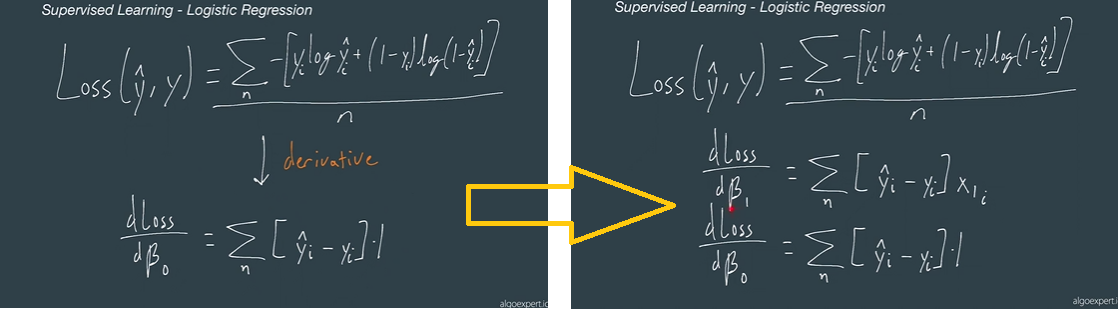 Supervised Learning - Logistic Regression
Loss(ŷ, y) = ∑ -[yᵢ log ŷᵢ + (1-yᵢ) log(1-ŷᵢ)]
n
n
derivative
dLoss
dβ₀
= ∑ [ŷᵢ - yᵢ]·1
n
algoexpert.io
Supervised Learning - Logistic Regression
Loss(ŷ, y) = ∑ -[yᵢ log ŷᵢ + (1-yᵢ) log(1-ŷᵢ)]
n
n
dLoss
dβ₁
= ∑ [ŷᵢ - yᵢ] x₁ᵢ
n
dLoss
dβ₀
= ∑ [ŷᵢ - yᵢ]·1
n
algoexpert.io